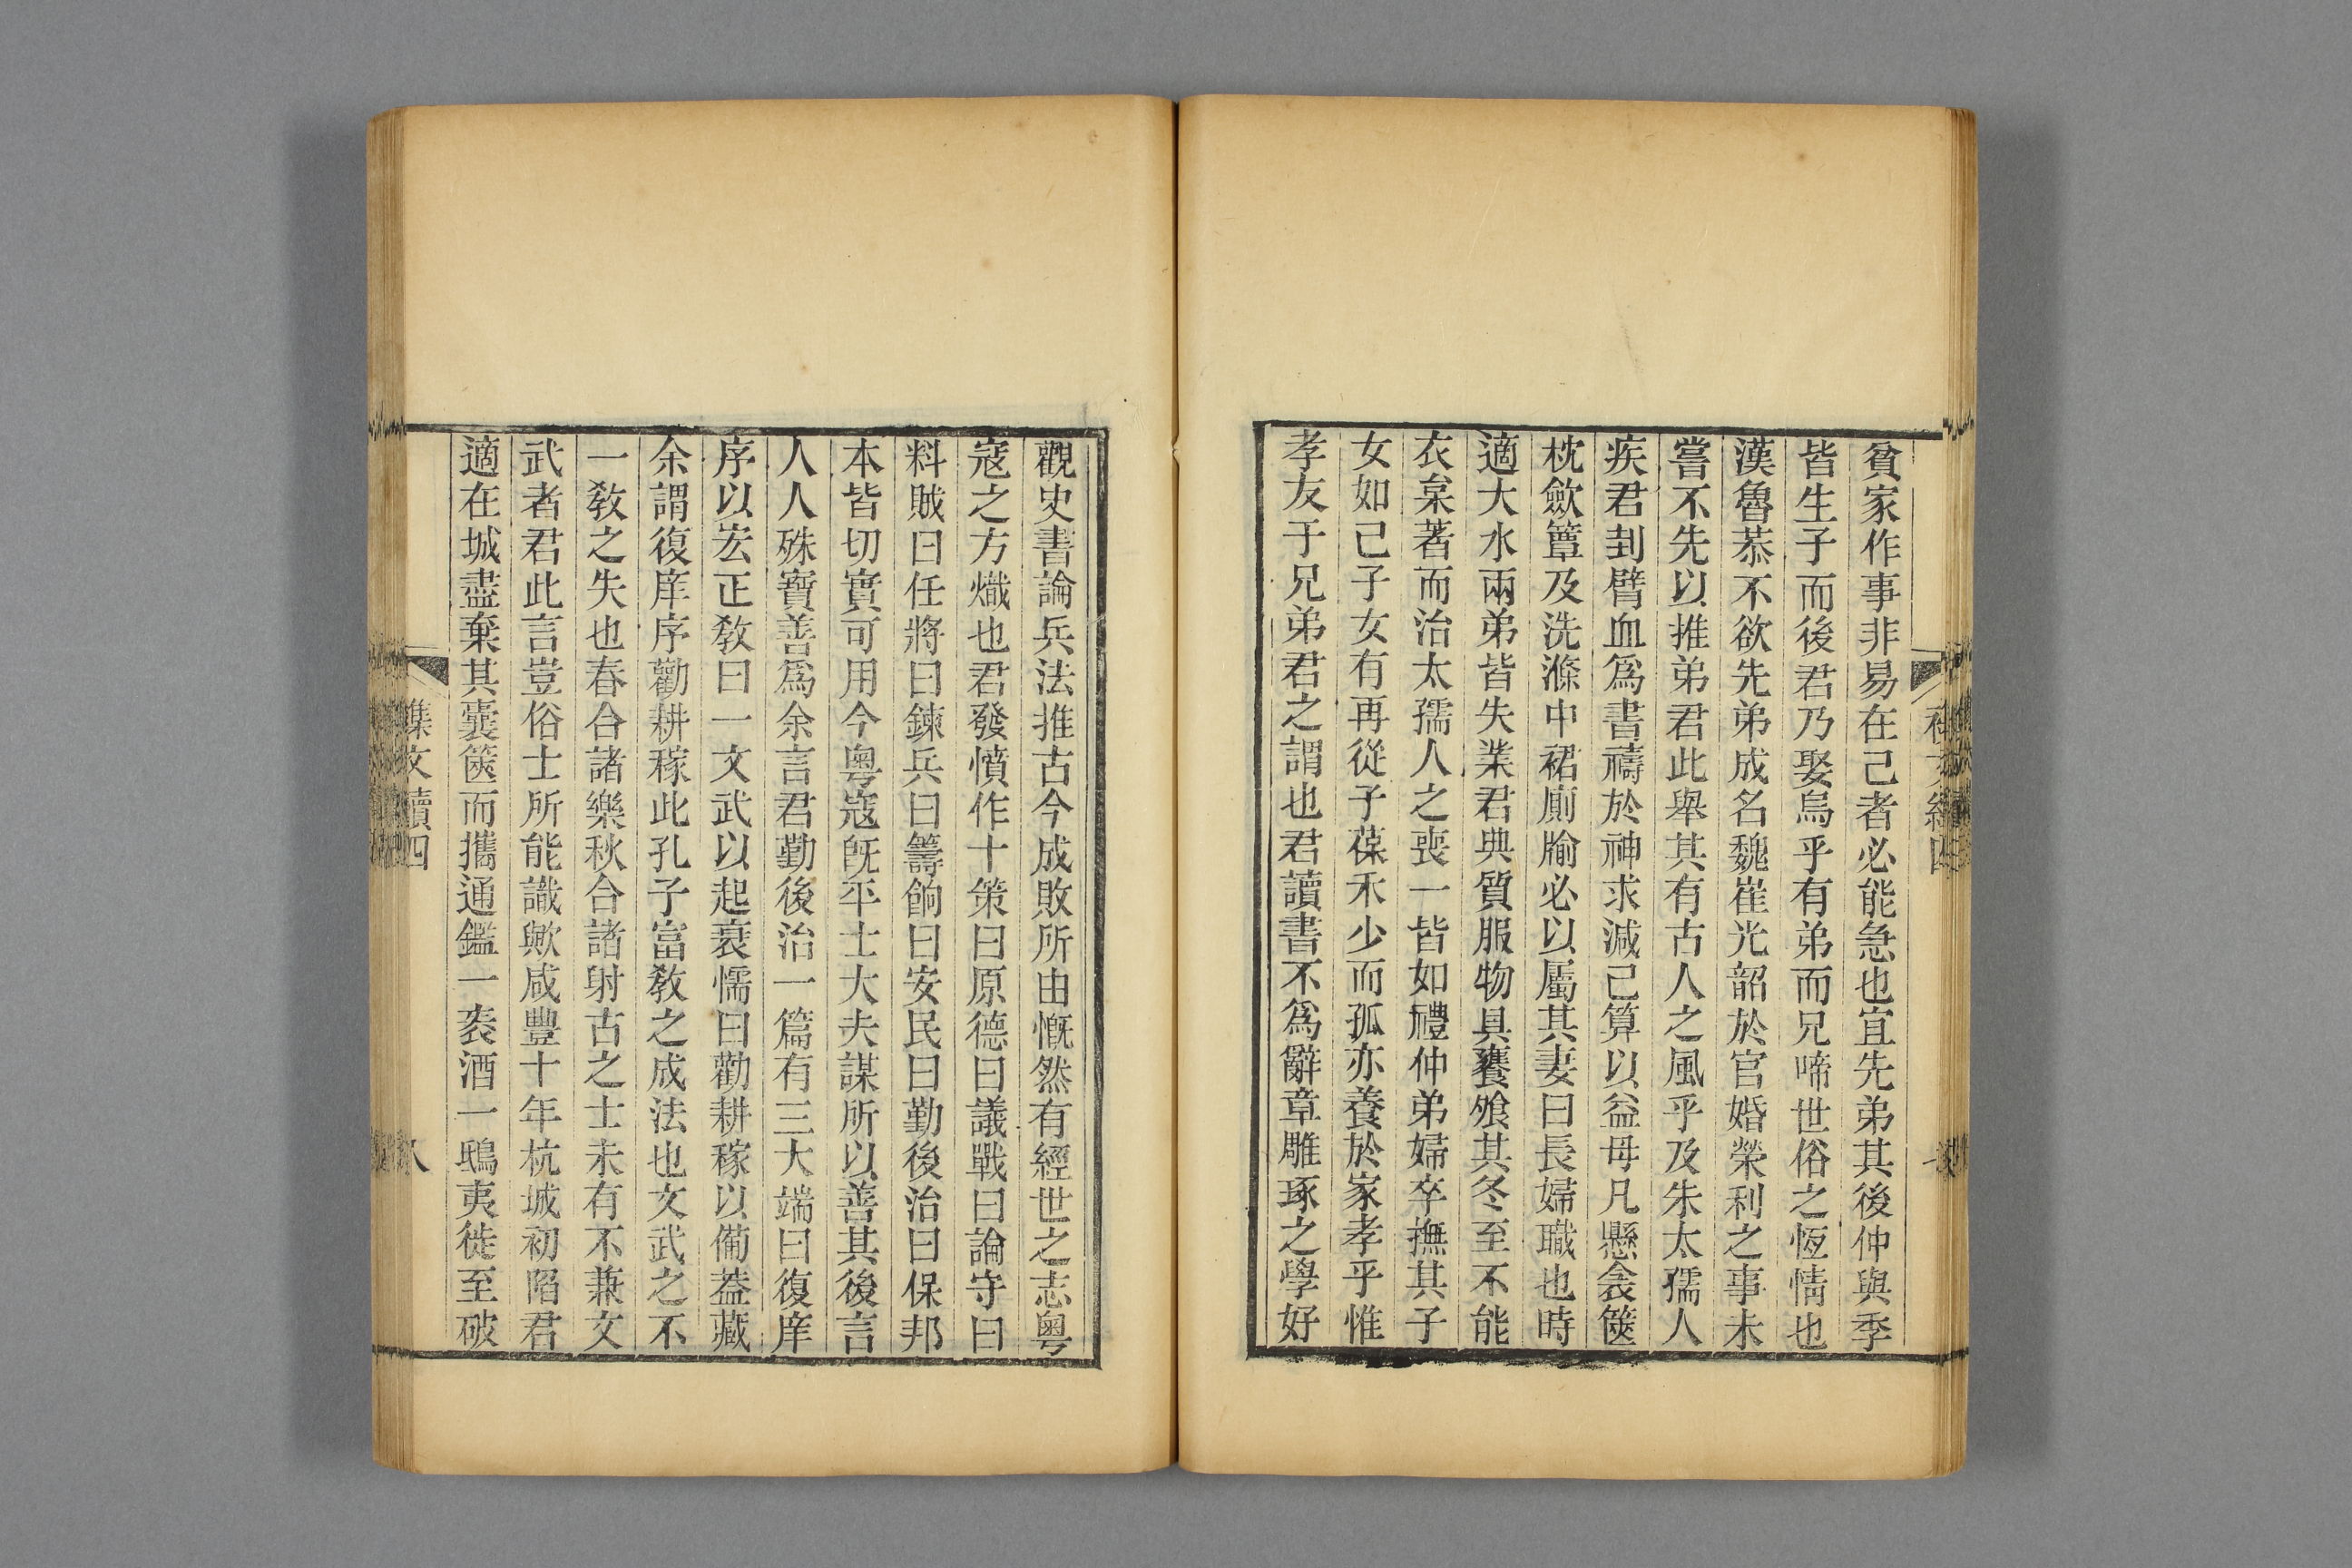 貧家作事非易在己者必能急也宜先弟其後仲與季
皆生子而後君乃娶烏乎有弟而兄啼世俗之恆情也
漢魯恭不欲先弟成名魏崔光韶於官婚榮利之事未
嘗不先以推弟君此舉其有古人之風乎及朱太孺人
疾君刲臂血爲書禱於神求減己算以益母凡懸衾篋
枕歛簟及洗滌中裙廁牏必以屬其妻曰長婦職也時
適大水兩弟皆失業君典質服物具饔飧其冬至不能
衣枲著而治太孺人之喪一皆如禮仲弟婦卒撫其子
女如己子女有再從子葆禾少而孤亦養於家孝乎惟
孝友于兄弟君之謂也君讀書不爲辭章雕琢之學好
觀史書論兵法推古今成敗所由慨然有經世之志粵
寇之方熾也君發憤作十策曰原德曰議戰曰論守曰
料賊曰任將曰鍊兵曰籌餉曰安民曰勤後治曰保邦
本皆切實可用今粵寇旣平士大夫謀所以善其後言
人人殊寶善爲余言君勤後治一篇有三大端曰復庠
序以宏正敎曰一文武以起衰懦曰勸耕稼以備葢藏
余謂復庠序勸耕稼此孔子富敎之成法也文武之不
一敎之失也春合諸樂秋合諸射古之士未有不兼文
武者君此言豈俗士所能識歟咸豐十年杭城初陷君
適在城盡棄其囊篋而攜通鑑一袠酒一鴟夷徙至破
襍文續四
八